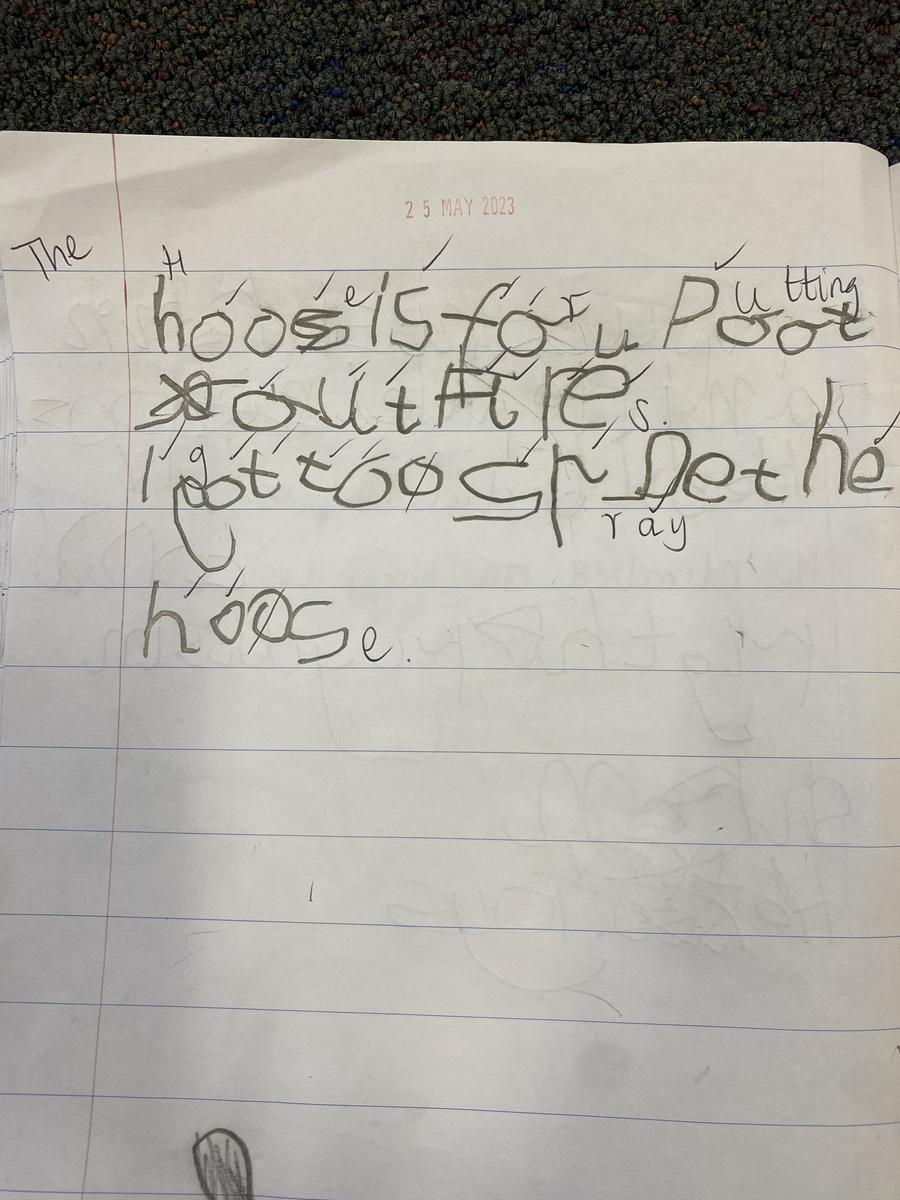 25 MAY 2023
The H
hoose is for u Poot utting
out Fire s.
I got to spDet the
ray
hoose.